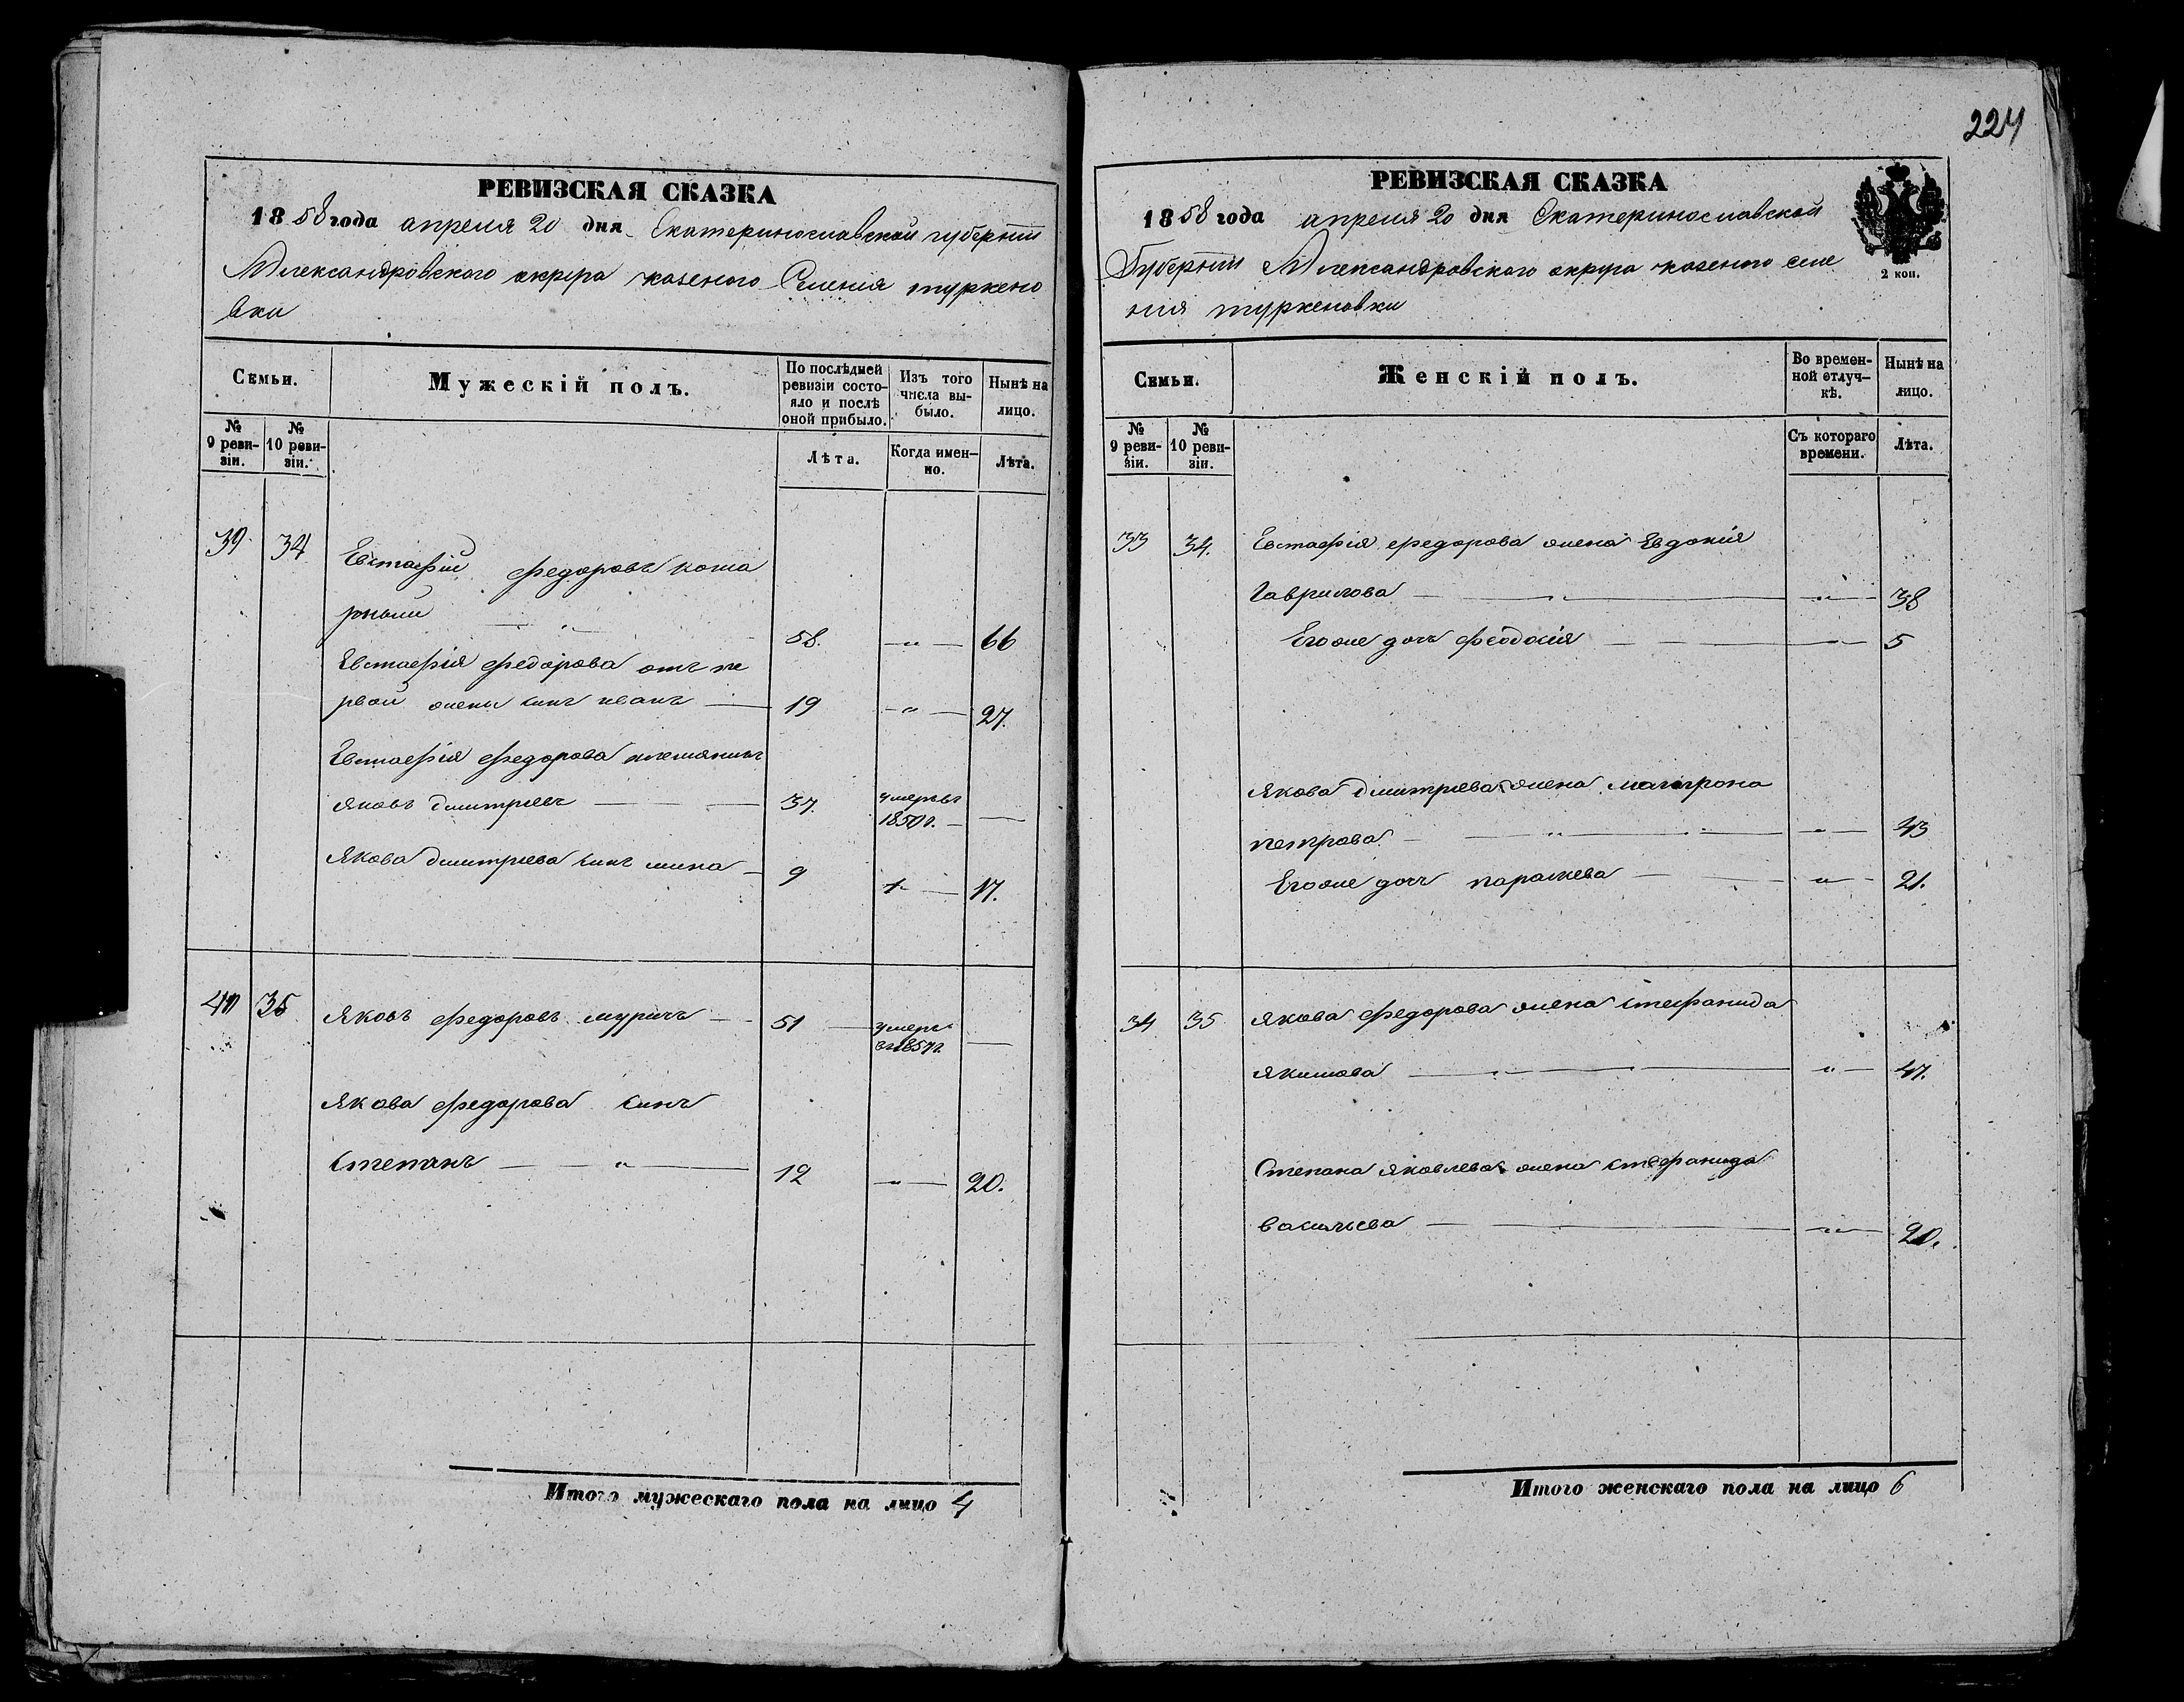 224
РЕВИЗСКАЯ СКАЗКА
1858 года апреля 20 дня Екатеринославской губернии
Александровского округа казеного Селения туркено
вки
Семьи.
Мужескій полъ.
По послѣдней ревизіи состояло и послѣ оной прибыло.
Изъ того числа выбыло.
Нынѣ на лицо.
№ 9 ревизіи.
№ 10 ревизіи.
Лѣта.
Когда именно.
Лѣта.
39 34 Евстафій федоровъ коша
рный 58. — " — 66
Евстафія федорова отъ пе
рвой жены синъ иванъ — 19 — " — 27.
Евстафія федорова племяникъ
яковъ дмитріевъ — 37. умеръ въ 1850 г. —
Якова дмитріева синъ мина — 9 — 17.
40 35 Яковъ федоровъ — 51 — умеръ въ 1857 г. —
Якова федорова синъ
Степанъ — " — 12 — " — 20.
Итого мужескаго пола на лицо 4
РЕВИЗСКАЯ СКАЗКА
1858 года апреля 20 дня Екатеринославской
Губернии Александровскаго округа казеного селе
ния туркеновки
2 коп.
Семьи.
Женскій полъ.
Во временной отлучкѣ.
Нынѣ на лицо.
№ 9 ревизіи.
№ 10 ревизіи.
Съ котораго времени.
Лѣта.
33 34. Евстафія федорова жена Евдокія
Гаврилова — " — " — 38
Егоже дочъ феодосія — — 5
Якова дмитріева жена матрона
петрова — " — " — " — 43
Егоже дочъ параскева — " — 21.
34 35 Якова федорова жена стефанида
якимова — " — " — " — 47.
Степана яковлева жена стефанида
васильева — " — 20.
Итого женскаго пола на лицо 6